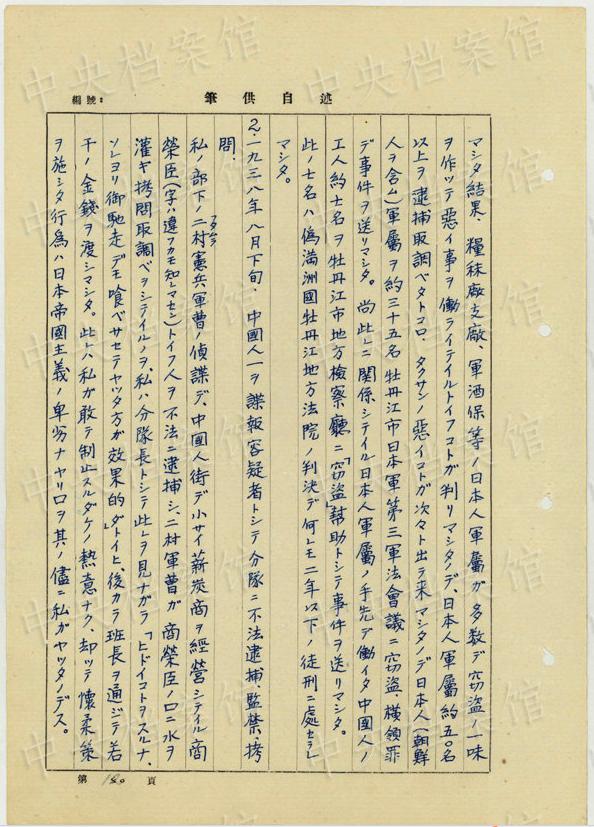 編號:
述自供筆
マシタ結果、糧秣廠支廠、軍酒保等ノ日本人軍屬ガ多数デ窃盗ノ一味
ヲ作ツテ悪イ事ヲ働ライテイルトイフコトガ判リマシタノデ、日本人軍屬約五〇名
以上ヲ逮捕取調ベタトコロ、タクサンノ悪イコトガ次々ト出テ来マシタノデ日本人(朝鮮
人ヲ含ム)軍屬ヲ約三十五名牡丹江市日本軍第三軍法會議ニ窃盗、横領罪
デ事件ヲ送リマシタ。尚此レニ関係シテイル日本人軍屬ノ手先デ働イタ中國人ノ
工人約十名ヲ牡丹江市地方検察廳ニ「窃盗」幇助トシテ事件ヲ送リマシタ。
此ノ十名ハ偽満洲國牡丹江地方法院ノ判決デ何レモ二年以下ノ徒刑ニ処セラレ
マシタ。
2.一九三八年八月下旬、中國人一ヲ諜報容疑者トシテ分隊ニ不法逮捕、監禁、拷
問。
私ノ部下ノ二村憲兵軍曹ノ偵諜デ、中國人街デ小サイ薪炭商ヲ經營シテイル商
榮臣(字ハ違フカモ知レマセン)トイフ人ヲ不法ニ逮捕シ、二村軍曹ガ商榮臣ノ口ニ水ヲ
灌ギ拷問取調ベヲシテイルノヲ、私ハ分隊長トシテ此レヲ見ナガラ「ヒドイコトヲスルナ、
ソレヨリ御馳走デモ喰ベサセテヤツタ方ガ効果的」ダトイヒ、後カラ班長ヲ通ジテ若
干ノ金錢ヲ渡シマシタ。此レハ私ガ敢テ制止スルダケノ熱意ナク、却ツテ懐柔策
ヲ施シタ行為ハ日本帝國主義ノ卑劣ナヤリ口ヲ其ノ儘ニ私ガヤツタノデス。
第 180 頁
中央档案馆